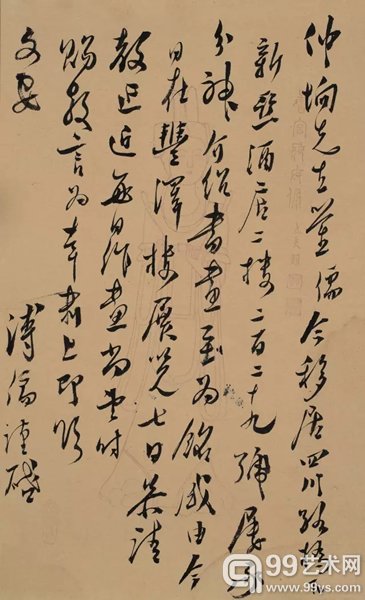 仲坰先生鉴儒今移居四川路桥
新亚酒店二楼二百二十九号屡承
分神介绍书画至为铭感由今
日在丰泽楼展览七日恭请
教正近每日作画尚望时
赐教言为幸肃上即颂
文安
溥儒谨启
99艺术网
www.99ys.com